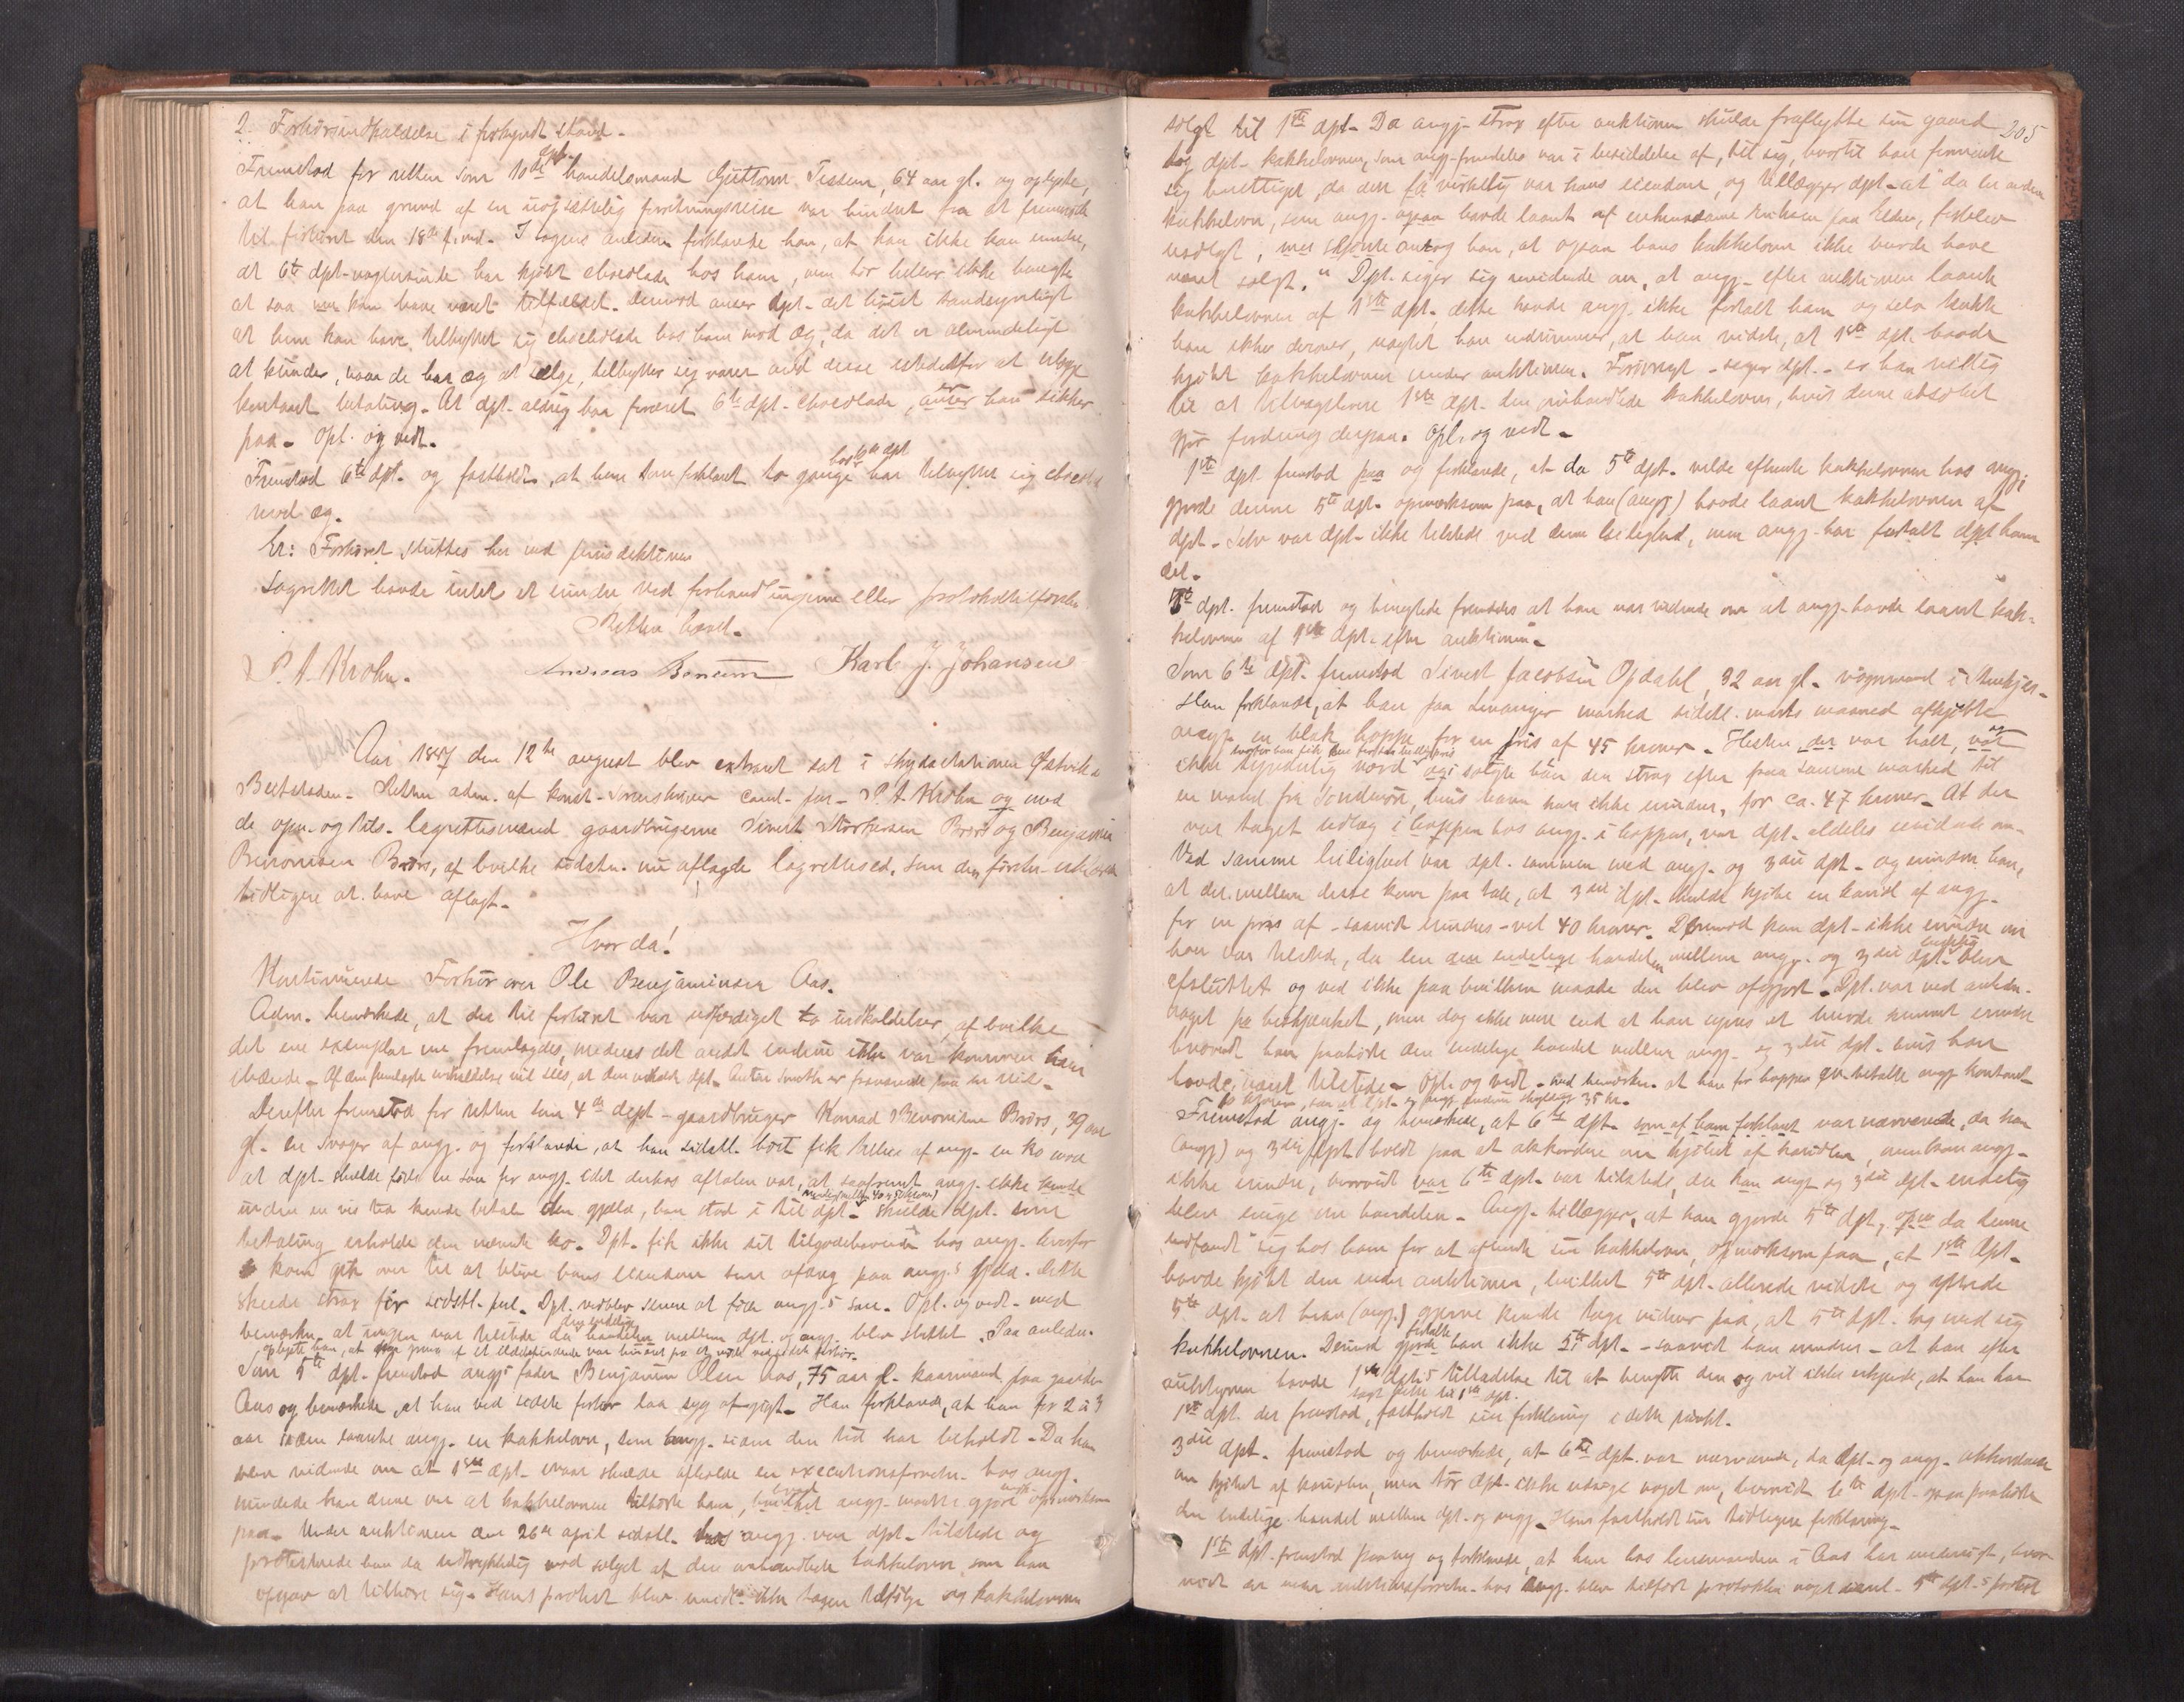 2. Forhørsindkaldelse i forkyndt stand.
Fremstod for retten som 10de dpt. handelsmand Guttorm Tessem, 64 aar gl. og oplyste,
at han paa grund af en uopsættelig forretningsreise var hindret fra at fremmøde
til forhøret den 18de f. md. I sagens anledn. forklarede han, at han ikke kan mindes,
at 6te dpt. nogensinde har kjøbt chocolade hos ham, men tør heller ikke benegte
at saa kan have været tilfældet. Derimod anser dpt. det høist sandsynligt
at hun kan have tilbyttet sig chocolade hos ham mod æg, da det er almindeligt
at kunder, naar de har æg at sælge, tilbytter sig varer mod disse istedetfor at erlægge
kontant betaling. At dpt. aldrig har foræret 6te dpt. chocolade, er han sikker
paa. Opl. og vedt.
Fremstod 6te dpt. og fastholdt, at hun som forklaret to gange hos 10de dpt. har tilbyttet sig chocolade
mod æg.
Er: Forhøret sluttes her ved jurisdiktionen
Lagrettet havde intet at erindre ved forhandlingerne eller protokoltilførslen.
Retten hævet.
P. A. Krohn. Andreas Karl J. Johansen
Aar 1897 den 12te august blev extraret sat i skydsstationen Østvik i
Beitstaden. Retten adm. af konst. sorenskriver cand. jur. P. A. Krohn og med
de opn. og tils. lagrettesmænd gaardbrugerne Sivert Brørs og Benjamin
Benonisen Brørs, af hvilke sidstn. nu aflagde lagretteed, som den førstn. erkl.
tidligere at have aflagt.
Hvor da!
Kontinuerede Forhør over Ole Benjaminsen Aas.
Adm. bemærkede, at der til forhøret var udfærdiget to indkaldelser, af hvilke
det ene exemplar nu fremlagdes, medens det andet endnu ikke var kommen ham
ihænde. Af den fremlagte indkaldelse vil sees, at den indkaldte dpt. Anton er fraværende paa en reise.
Derefter fremstod for retten som 4de dept. gaardbruger Konrad Benonisen Brørs, 39 aar
gl. en svoger af angj. og forklarede, at han sidstl. høst fik tilleie af angj. en ko mod
at dpt. skulde føde en sau for angj. idet derhos aftalen var, at saafremt angj. ikke
inden en vis tid kunde betale den gjæld, han stod i til dpt. (mindst mellem 40 a 50 kroner) skulde dpt. som
betaling erholde den nævnte ko. Dpt. fik ikke sit tilgodehavende hos angj. hvorfor
koen gik over til at blive hans eiendom som afdrag paa angj.s gjæld. Dette
skeede strax før sidstl. jul. Dpt. vedblev senere at føde angj.s sau. Opl. og vedt. med
bemærkn. at ingen var tilstede da den endelige handelen mellem dpt. og angj. blev sluttet. Paa anledn.
oplyste han, at paa grund af et ildebefindende var hindret fra at møde ved sidste forhør.
Som 5te dpt. fremstod angj.s fader Benjamin Olsen Aas, 75 aar gl. kaarmand paa gaarden
Aas og bemærkede, at han ved sidste forhør laa syg af gigt. Han forklarede, at han for 2 a 3
aar siden laante angj. en kakkelovn, som angj. siden den tid har beholdt. Da han
blev vidende om at 1ste dpt. ivaar skulde afholde en executionsforretn. hos angj.
mindede han denne om at kakkelovnen tilhørte ham, hvad angj. maatte gjøre opmærksom
paa. Under auktionen den 26de april sidstl. hos angj. var dpt. tilstede og
protesterede han da udtrykkelig mod salget af den omhandlede kakkelovn, som han
opgav at tilhøre sig. Hans protest blev imidt. ikke tagen tilfølge og kakkelovnen
205
solgt til 1ste dpt. Da angj. strax efter auktionen skulde fraflytte sin gaard
tog dpt. kakkelovnen, som angj. fremdeles var i besiddelse af, til sig, hvortil han formente
sig berettiget, da den jo virkelig var hans eiendom, og tillægger dpt. at "da en anden
kakkelovn, som angj. ogsaa havde laant af enkemadame Eriksen paa Elden, forblev
usolgt, antog han, at ogsaa hans kakkelovn ikke burde have
været solgt." Dpt. siger sig uvidende om, at angj. efter auktionen laante
kakkelovnen af 1ste dpt., dette havde angj. ikke fortalt ham og selv tænkte
han ikke derover, uagtet han indrømmer, at han vidste, at 1ste dpt. havde
kjøbt kakkelovnen under auktionen. Forøvrigt – siger dpt. – er han villig
til at tilbagelevere 1ste dpt. den omhandlede kakkelovn, hvis denne absolut
gjør fordring derpaa. Opl. og vedt.
1ste dpt. fremstod paa og forklarede, at da 5te dpt. vilde afhente kakkelovnen hos angj.,
gjorde denne 5te dpt. opmærksom paa, at han (angj.) havde laant kakkelovnen af
dpt. Selv var dpt. ikke tilstede ved denne leilighed, men angj. har fortalt ham
det.
5te dpt. fremstod og benegtede fremdeles at han var vidende om at angj. havde laant kak-
kelovnen af 1ste dpt. efter auktionen.
Som 6te dpt. fremstod Sivert Jacobsen Opdahl, 32 aar gl. vognmand i Stenkjær.
Han forklarede, at han paa Levanger marked sidstl. marts maaned afkjøbte
angj. en blak hoppe for en pris af 45 kroner. Hesten var halt, og
ikke synderlig værd og solgte han den strax efter paa samme marked til
en mand fra Sondmør, hvis navn han ikke mindes, for ca. 47 kroner. At der
var taget udlæg i hoppen hos angj. i hoppen, var dpt. aldeles uvidende om.
Ved samme leilighed var dpt. sammen med angj. og 3die dpt. og mindes han,
at der mellem disse kom paa tale, at 3die dpt. skulde kjøbe en kariol af angj.
for en pris af – saavidt mindes – vel 40 kroner. Derimod kan dpt. ikke mindes om
han var tilstede, da den handelen mellem angj. og 3die dpt. endelig blev
afsluttet og ved ikke paa hvilken maade den blev afgjort. Dpt. var ved anledn.
noget beskjænket, men dog ikke mere end at han synes at burde kunnet erindre
hvorvidt han paahørte den endelige handel mellem angj. og 3die dpt. hvis han
havde været tilstede. Opl. og vedt. med bemærkn. at han for hoppen betalte angj. kontant
10 kroner, saa at dpt. er angj. endnu skyldig 35 kr.
Fremstod angj. og bemærkede, at 6te dpt. som af ham forklaret var nærværende, da han
(angj.) og 3die dpt. holdt paa at akkordere om kjøbet af kariolen, men kan angj.
ikke erindre, hvorvidt 6te dpt. var tilstede, da angj. og 3die dpt. endelig
blev enige om handelen. Angj. tillægger, at han gjorde 5te dpt., da denne
indfandt sig hos ham for at afhente sin kakkelovn, opmærksom paa, at 1ste dpt.
havde kjøbt den under auktionen, hvilket 5te dpt. allerede vidste og
5te dpt. at han (angj.) gjerne kunde tage vidner paa, at 5te dpt. tog med sig
kakkelovnen. Derimod fortalte han ikke 5te dpt. – saavidt han erindrer – at han efter
auktionen havde 1ste dpt.s tilladelse til at benytte den og vil ikke erkjende, at han har
sagt dette til 1ste dpt.
1ste dpt. der fremstod, fastholdt sin forklaring i dette punkt.
3die dpt. fremstod og bemærkede, at 6te dpt. var nærværende, da dpt. og angj. akkorderede
om kjøbet af kariolen, men tør dpt. ikke udsige noget om, hvorvidt 6te dpt. ogsaa paahørte
den endelige handel mellem dpt. og angj. Han fastholdt sin tidligere forklaring.
1ste dpt. fremstod paany og forklarede, at han hos lensmanden i Aas har undersøgt, hvor
vidt der under auktionsforretn. hos angj. blev tilført protokollen noget 5te dpt.s protest